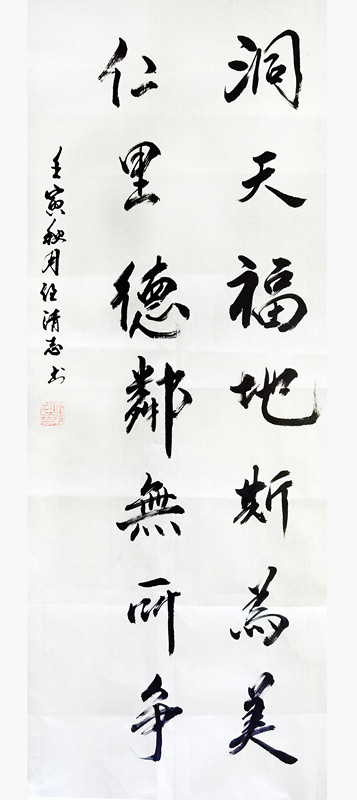 洞天福地斯為美
仁里德鄰無所争
壬寅秋月任清志书